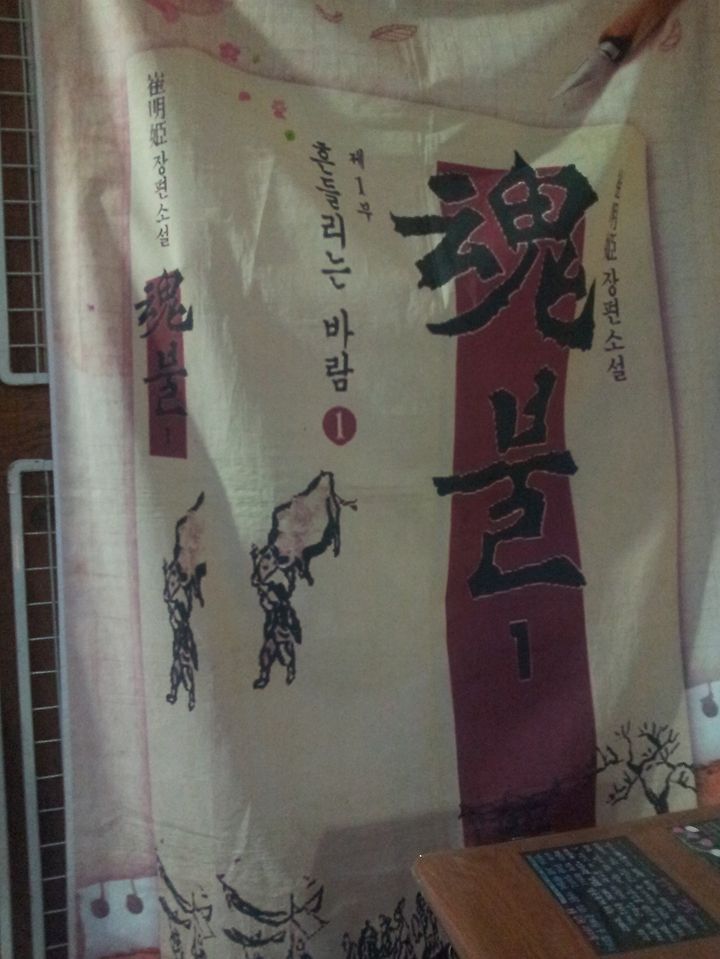 崔明姬 장편소설
魂불
1
제1부
흔들리는 바람
1
崔明姬 장편소설
魂불
1